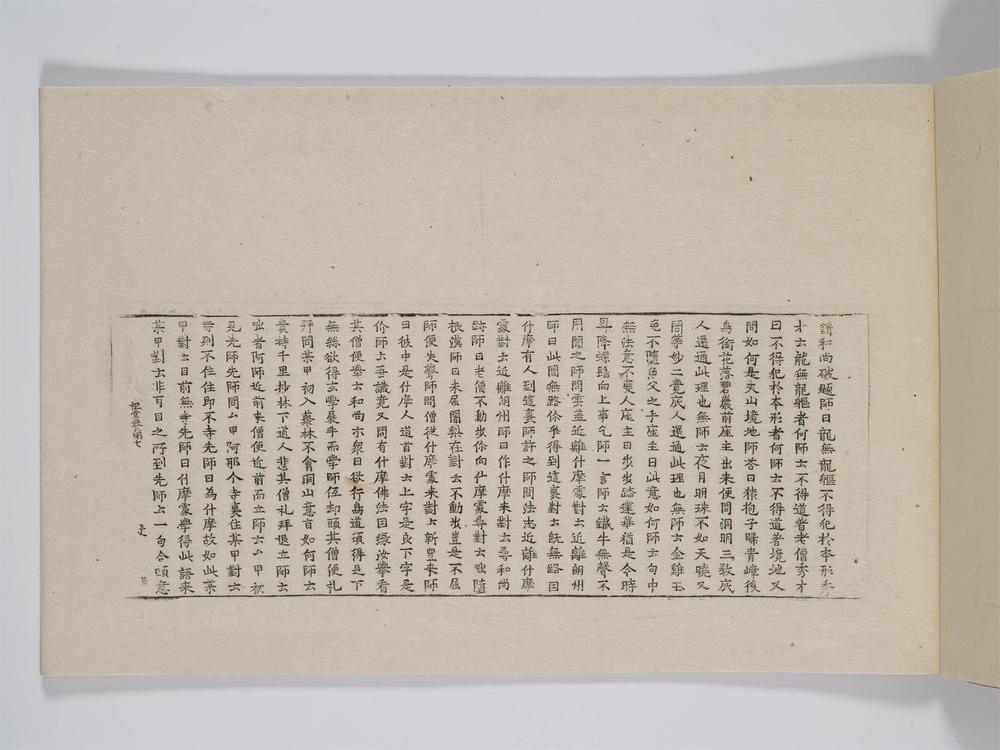 請和尚破題師曰龍無龍軀不得犯於本形秀
才云龍無龍軀者何師云不得道著老僧秀才
曰不得犯於本形者何師云不得道著境地又
問如何是夾山境地師荅曰猿抱子歸青嶂後
鳥銜花落碧巖前座主出来便問洞明三教底
人還通此理也無師云夜月明珠不如天曉又
問等妙二覺底人還通此理也無師云金雞玉
兔不隨魚父之手座主曰此意如何師云句中
無法意不度人座主曰步步踏蓮華猶是今時
鳥降螺髻向上事乞師一言師云鐵牛無聲不
用聞之師問雲盖近離什摩處對云近離朗州
師曰此間無路你爭得到這裏對云既無路因
什摩有人到這裏師許之師問法志近離什摩
處對云近離胡州師曰作什摩来對云尋和尚
跡師曰老僧不動步你向什摩處尋對云咄隨
根漢師曰未屈闍梨在對云不動步豈是不屈
師便失聲師問僧從什摩處来對云新豊来師
曰彼中是什摩人道首對云上字是良下字是
价師云吾識竟又問有什摩佛法因緣汝舉看
其僧便舉云和尚示衆曰欲行鳥道須得足下
無絲欲得玄學展手而學師低却頭其僧便礼
拜問某甲初入叢林不會洞山意旨如何師云
貴持千里抄林下道人悲其僧礼拜退立師云
咄者阿師近前来僧便近前而立師云厶甲初
見先師先師問厶甲阿那个寺裏住某甲對云
寺則不住住即不寺先師曰為什摩故如此某
甲對云目前無寺先師曰什摩處學得此語来
某甲對云非耳目之所到先師云一句合頭意
祖堂卷第七